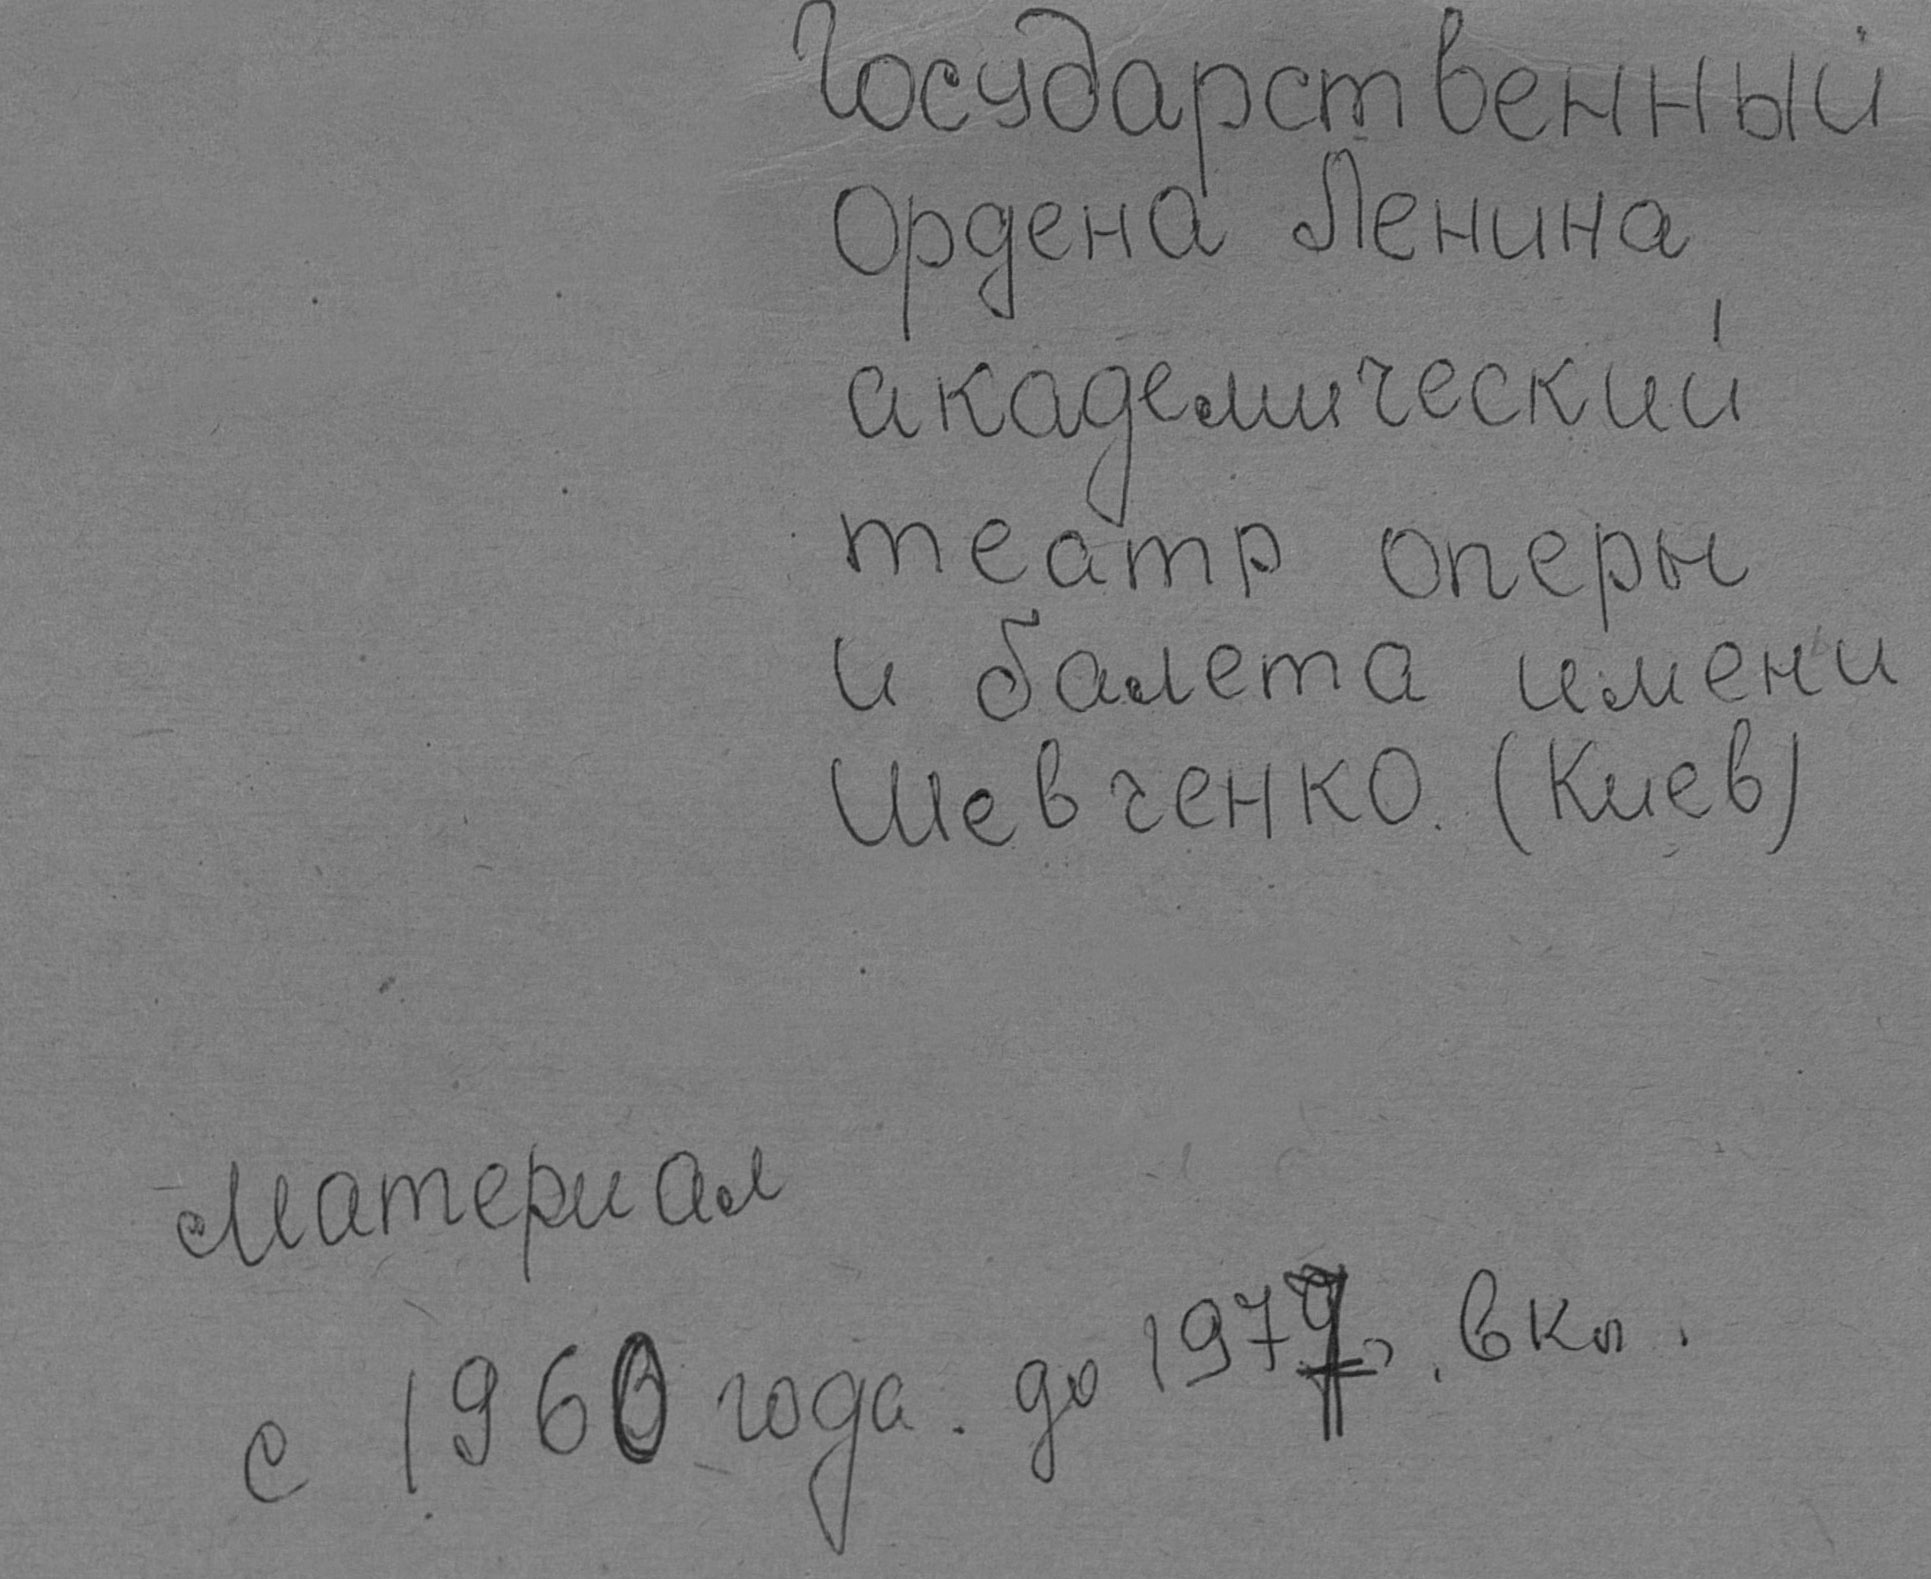 Государственный
Ордена Ленина
академический
театр оперы
и балета имени
Шевченко. (Киев)
Материал
с 1960 года. до 1977 г. вкл.